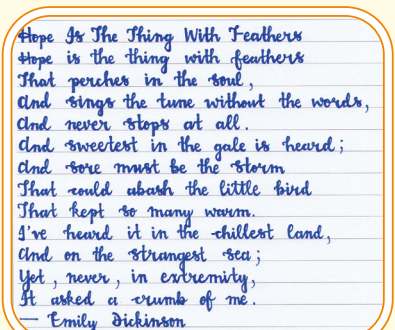 Hope Is The Thing With Feathers
Hope is the thing with feathers
That perches in the soul,
And sings the tune without the words,
And never stops at all.
And sweetest in the gale is heard;
And sore must be the storm
That could abash the little bird
That kept so many warm.
I've heard it in the chillest land,
And on the strangest sea;
Yet, never, in extremity,
It asked a crumb of me.
— Emily Dickinson